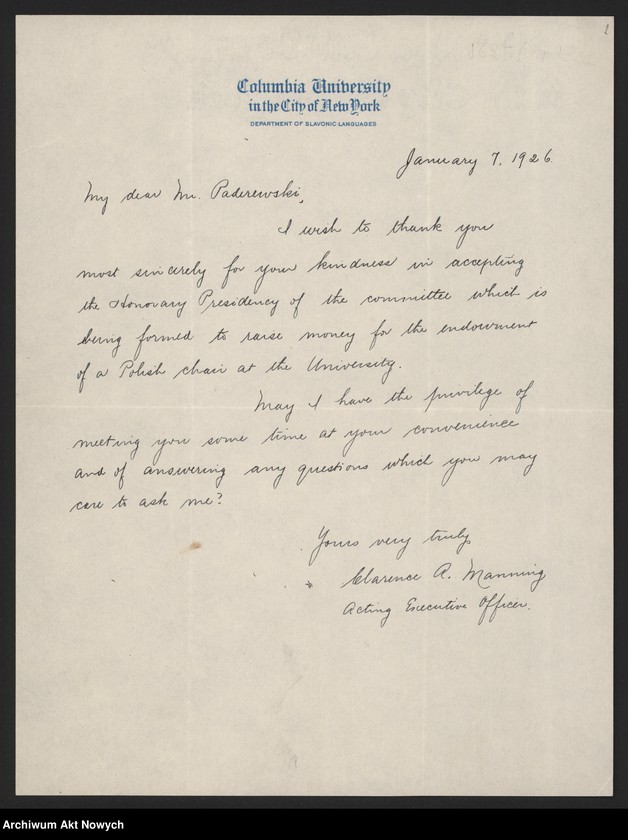 1
Columbia University
in the City of New York
DEPARTMENT OF SLAVONIC LANGUAGES
January 7, 1926.
My dear Mr. Paderewski,
I wish to thank you
most sincerely for your kindness in accepting
the Honorary Presidency of the committee which is
being formed to raise money for the endowment
of a Polish chair at the University.
May I have the privilege of
meeting you some time at your convenience
and of answering any questions which you may
care to ask me?
Yours very truly,
Clarence A. Manning
Acting Executive Officer.
Archiwum Akt Nowych